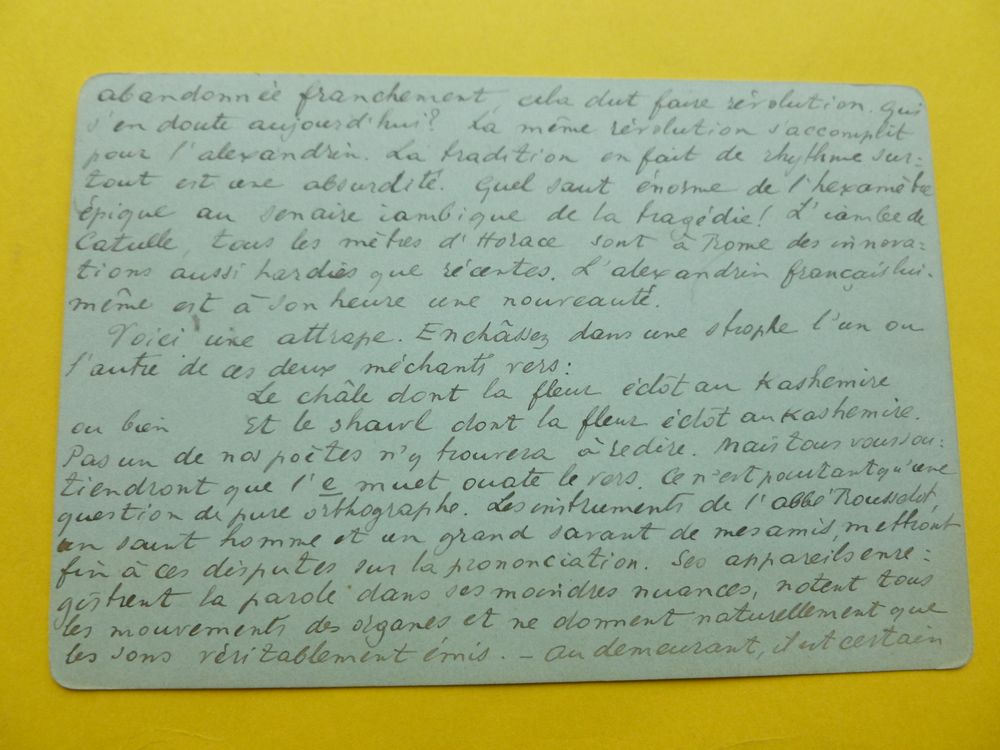 abandonnée franchement, cela dut faire révolution. Qui
s'en doute aujourd'hui? La même révolution s'accomplit
pour l'alexandrin. La tradition en fait de rhythme sur=
tout est une absurdité. Quel saut énorme de l'hexamètre
épique au senaire iambique de la tragédie! L'iambe de
Catulle, tous les mètres d'Horace sont à Rome des innova=
tions aussi hardies que récentes. L'alexandrin français lui-
même est à son heure une nouveauté.
Voici une attrape. Enchâssez dans une strophe l'un ou
l'autre de ces deux méchants vers:
Le châle dont la fleur éclôt au Kashemire
ou bien Et le shawl dont la fleur éclôt au Kashemire.
Pas un de nos poètes n'y trouvera à redire. Mais tous vous sou=
tiendront que l'e muet ouate le vers. Ce n'est pourtant qu'une
question de pure orthographe. Les instruments de l'abbé Rousselot,
un saint homme et un grand savant de mes amis, mettront
fin à ces disputes sur la prononciation. Ses appareils enre=
gistrent la parole dans ses moindres nuances, notent tous
les mouvements des organes et ne donnent naturellement que
les sons véritablement émis. – Au demeurant, il est certain